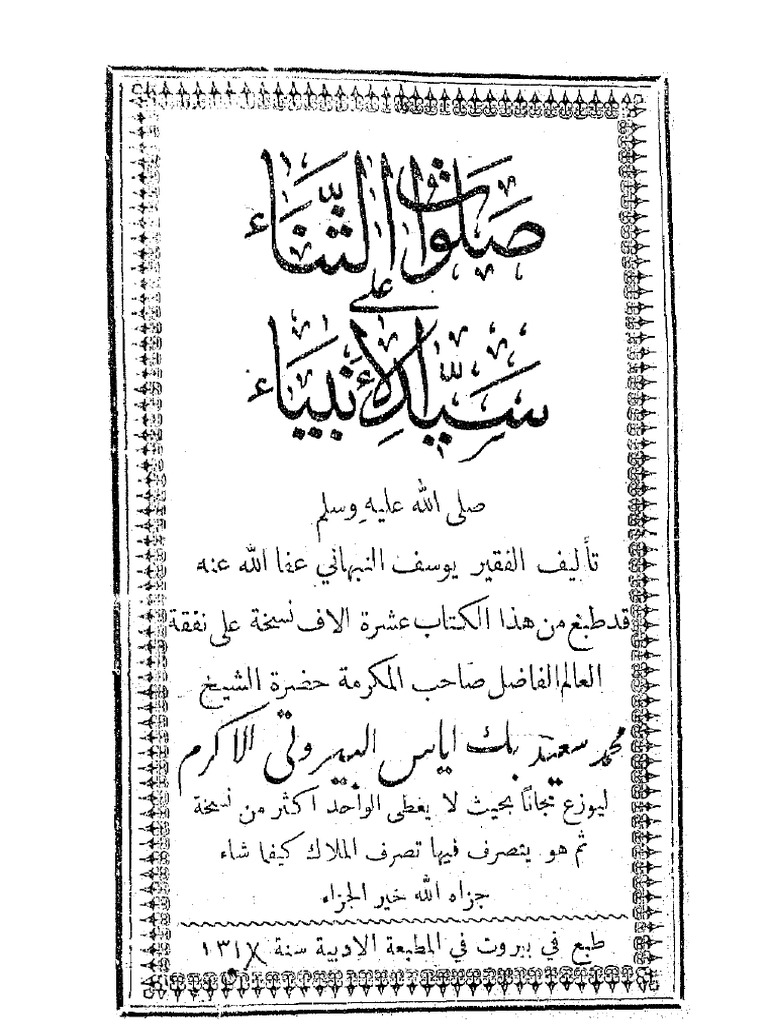 صَلَوَاتُ الثَّنَاء
على
سَيِّدِ الأَنْبِيَاء
صلى الله عليهِ وسلم
تأليف الفقير يوسف النبهاني عفا الله عنه
قد طبع من هذا الكتاب عشرة الاف نسخة على نفقة
العالم الفاضل صاحب المكرمة حضرة الشيخ
محمد سعيد بك اياس البيروتي الاكرم
ليوزع مجاناً بحيث لا يعطى الواحد اكثر من نسخة
ثم هو يتصرف فيها تصرف الملاك كيفما شاء
جزاه الله خير الجزاء
طبع في بيروت في المطبعة الادبية سنة